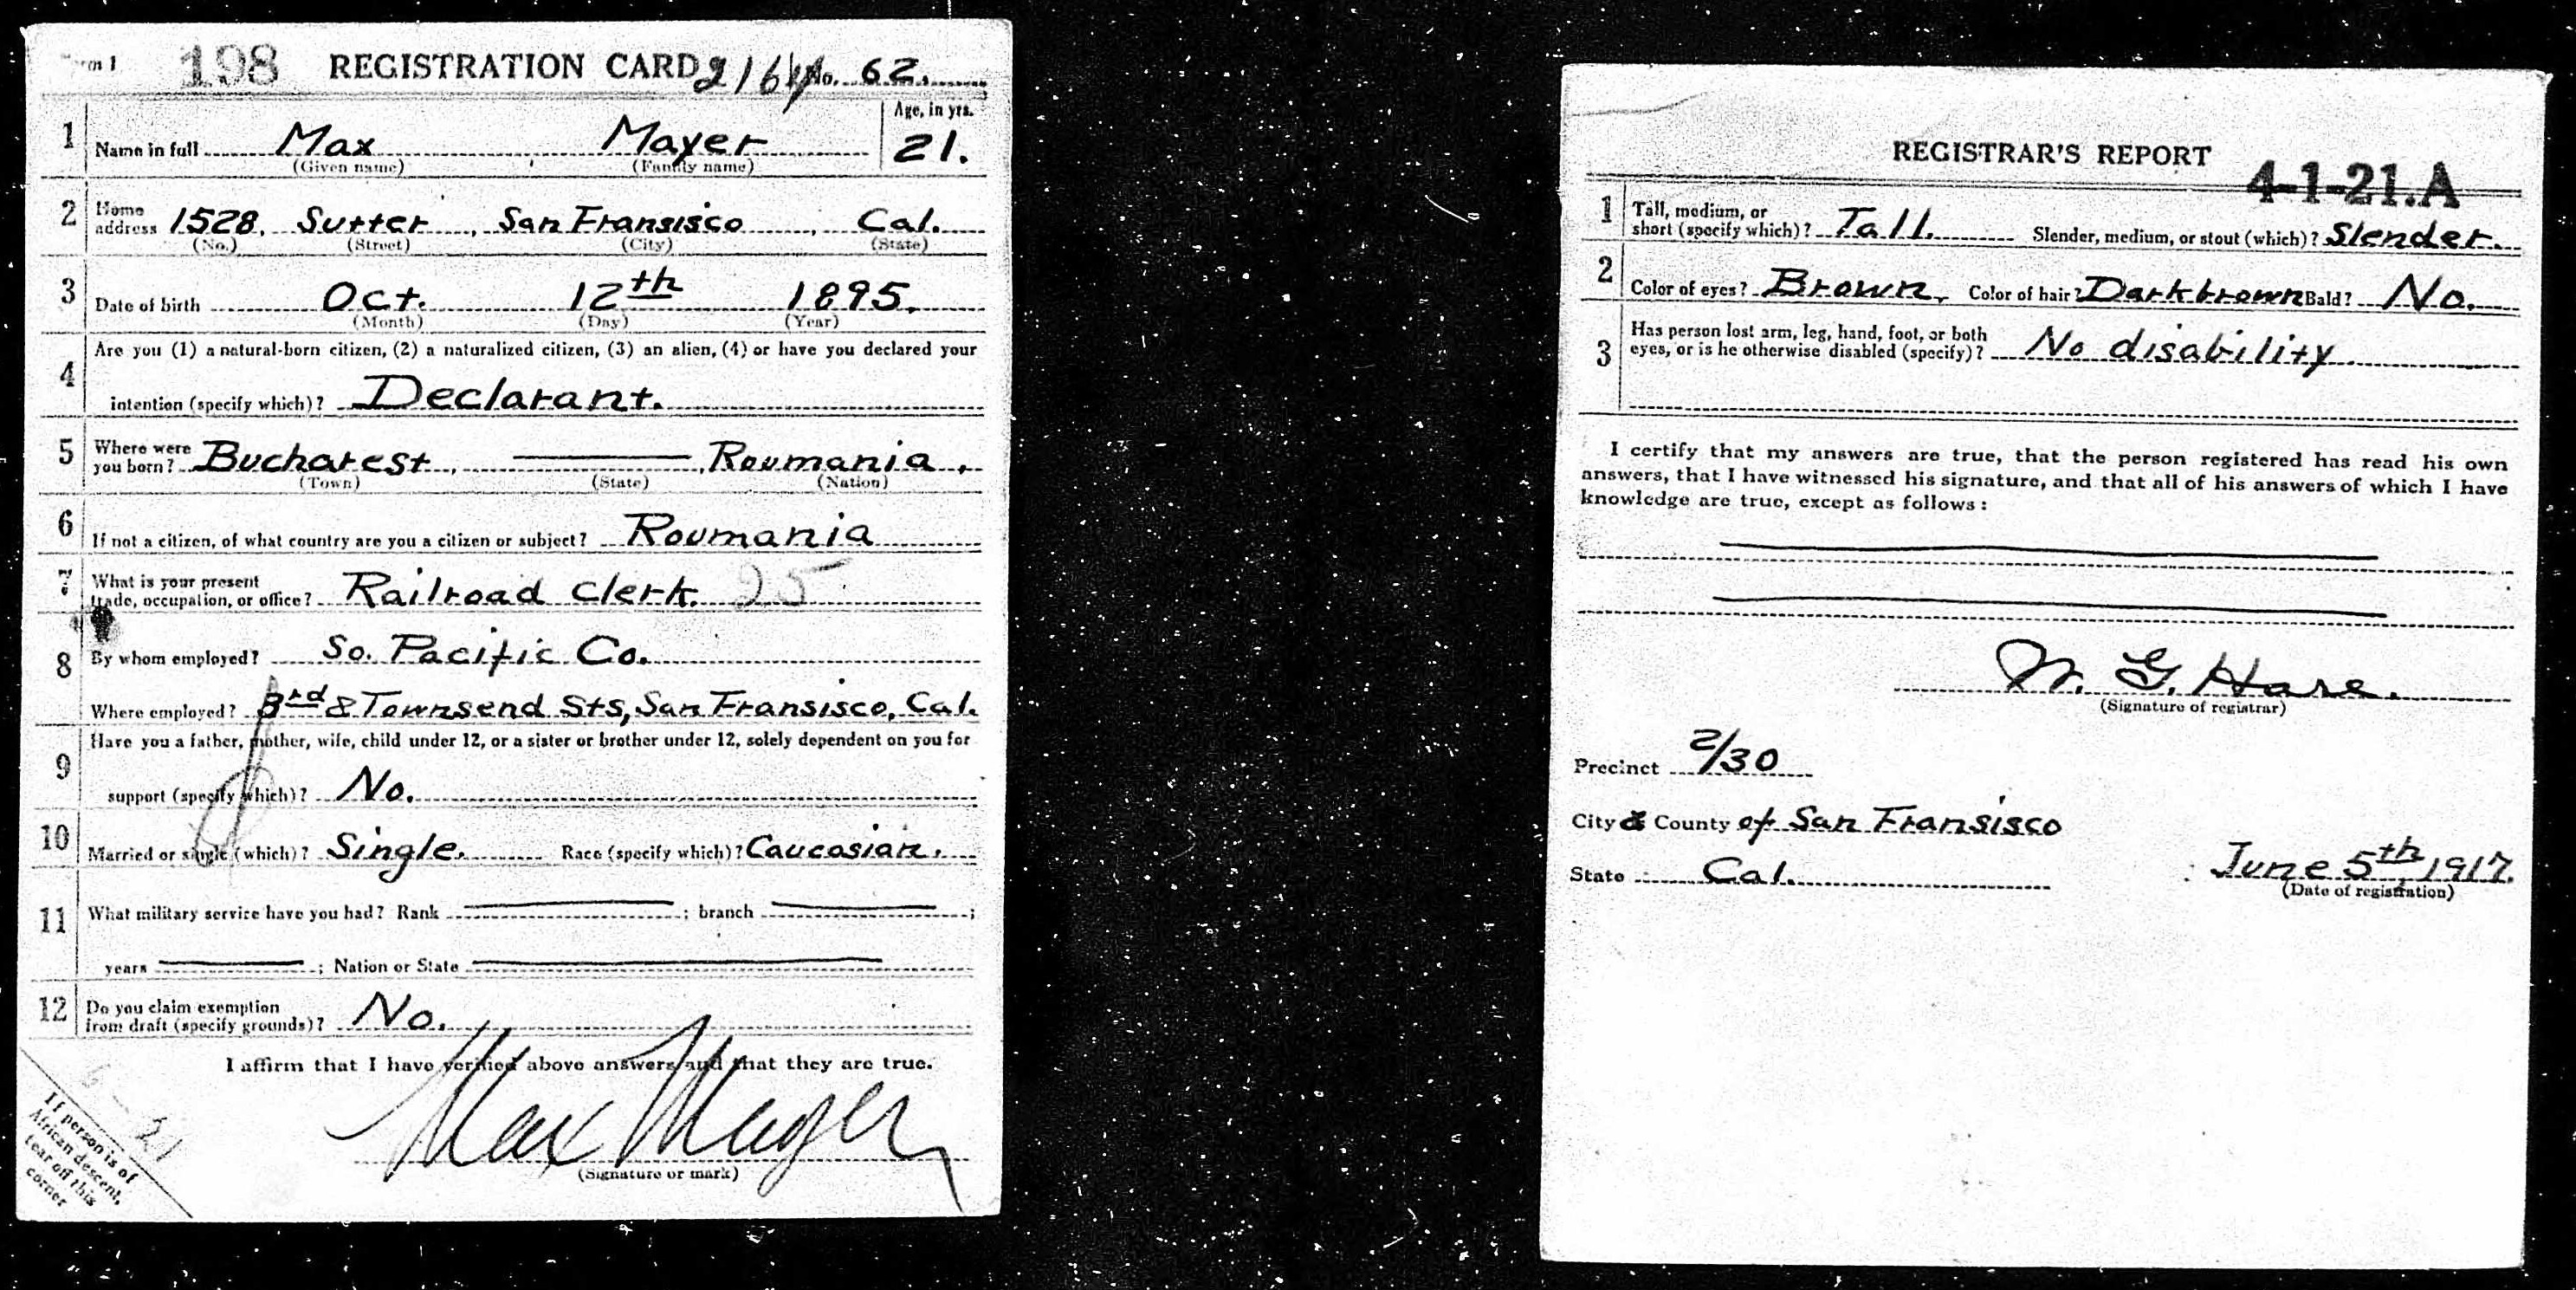 198 REGISTRATION CARD 2164 No. 62.
1 Name in full Max Mayer Age, in yrs. 21.
(Given name) (Family name)
2 Home address 1528, Sutter, San Fransisco, Cal.
(No.) (Street) (City) (State)
3 Date of birth Oct. 12th 1895.
(Month) (Day) (Year)
4 Are you (1) a natural-born citizen, (2) a naturalized citizen, (3) an alien, (4) or have you declared your
intention (specify which)? Declarant.
5 Where were you born? Bucharest, Roumania,
(Town) (State) (Nation)
6 If not a citizen, of what country are you a citizen or subject? Roumania
7 What is your present trade, occupation, or office? Railroad clerk. 25
8 By whom employed? So. Pacific Co.
Where employed? 3rd & Townsend Sts, San Fransisco, Cal.
9 Have you a father, mother, wife, child under 12, or a sister or brother under 12, solely dependent on you for
support (specify which)? No.
10 Married or single (which)? Single. Race (specify which)? Caucasian.
11 What military service have you had? Rank ; branch ;
years ; Nation or State
12 Do you claim exemption from draft (specify grounds)? No.
I affirm that I have verified above answers and that they are true.
Max Mayer
(Signature or mark)
If person is of
African descent,
tear off this
corner
21
REGISTRAR'S REPORT
4-1-21.A
1 Tall, medium, or short (specify which)? Tall. Slender, medium, or stout (which)? Slender.
2 Color of eyes? Brown. Color of hair? Dark brown Bald? No.
3 Has person lost arm, leg, hand, foot, or both
eyes, or is he otherwise disabled (specify)? No disability
I certify that my answers are true, that the person registered has read his own
answers, that I have witnessed his signature, and that all of his answers of which I have
knowledge are true, except as follows:
W. G. Hare.
(Signature of registrar)
Precinct 2/30
City & County of San Fransisco
State Cal. June 5th, 1917.
(Date of registration)